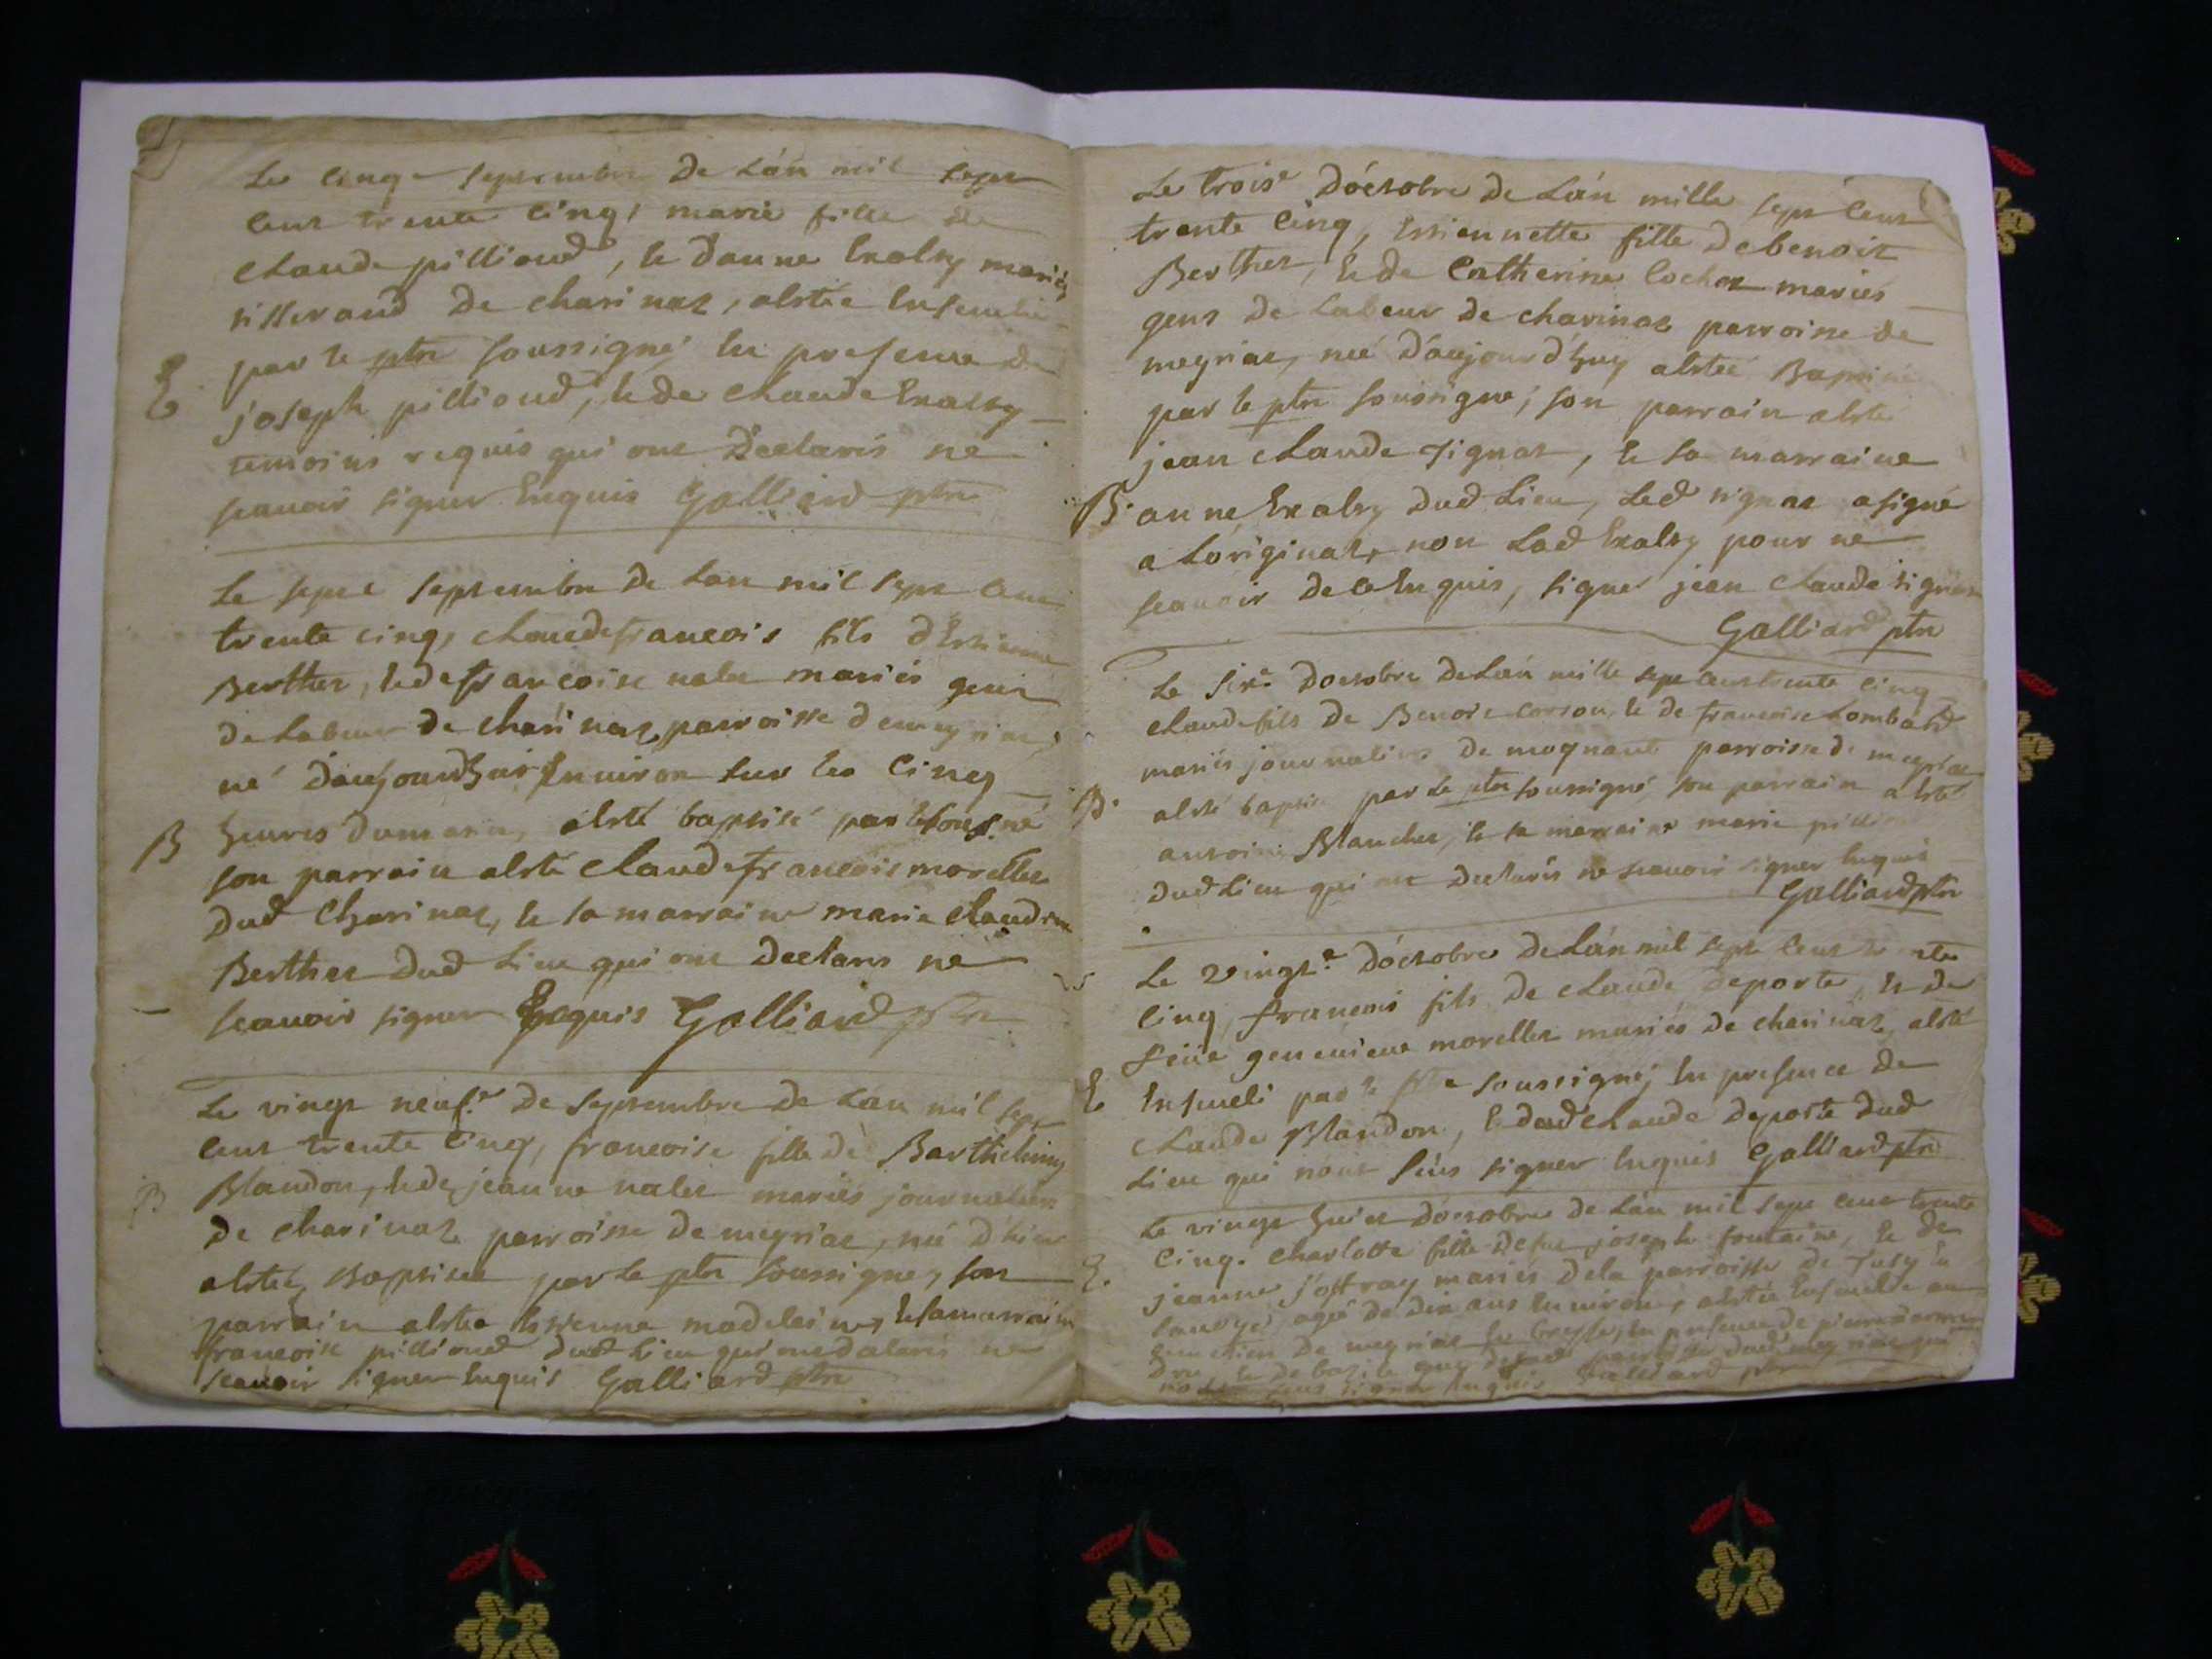 Le cinq.e septembre de Lán mil sept
cent trente cinq, marie fille de
claude pillioud, et danne Exalry mariés
tisseraud de charinaz, alstée Enseuelie
par le ptre soussigné En presence de
E
joseph pillioud, et de claude Exalry
temoins requis qui ont Declarés ne
scauoir signer Enquis Galliard ptre
Le sept.e septembre de Lan mil sept cent
trente cinq, claudefrancois fils dEstienne
Berthet, et defrancoise nalet mariés gens
de Labeur de charinaz parroisse demeyriat,
né daujourdhuit Enuiron sur les cinq
B
heures dumatin, alsté baptisé par le sous.né
son parrain alsté claudefrancois morellet
dud Charinaz, et sa marraine marie claudine
Berthet dud Lieu qui ont declarés ne
scauoir signer Enquis Galliard ptre
Le vingt neuf.e de septembre de Lan mil sept
cent trente cinq, francoise fille de Barthelemy
B
Blandon, et de jeanne nalet mariés journaliers
de charinaz parroisse de meyriat, née dhier
alstée Baptisée par le ptre soussigné, son
parrain alstée Estienne madelaine, et samarraine
francoise pillioud dud Lieu qui ont dalarés ne
scauoir signer Enquis Galliard ptre
Le trois.e dóctobre de Lán mille sept cent
trente cinq, Estiennette fille debenoit
Berthet, et de Catherine Cochet mariés
gens de Labeur de charinaz parroisse de
meyriat, née daujourdhuy alstée Baptisée
par le ptre soussigné, son parrain alsté
jean claude Tignat, et sa marraine
B.
anne Exalry dud Lieu, Led tignat asigné
a Lóriginal, non Lad Exalry pour ne
scauoir de ce Enquis, signé jean claude tignat
Galliard ptre
Le six.e doctobre deLán mille sept cent trente cinq
claude fils de Benoit corson, et de francoise Lombard
mariés journaliers de mognant parroisse de meyriat
B.
alsté baptisé par le ptre soussigné, son parrain alsté
antoine Blanchet, et sa marraine marie pillioud
dud Lieu qui ont declarés ne scauoir signer Enquis
Galliard ptre
Le vingt.e dóctobre deLán mil sept cent trente
cinq, francois fils de claude deporte, et de
feüe geneuieue morellet mariés de charinaz, alsté
E
Enseueli par le ptre soussigné, En presence de
claude Blandon, & dud claude deporte dud
Lieu qui nónt sçus signer Enquis Galliard ptre
Le vingt huit.e dóctobre de Lán mil sept cent trente
cinq. charlotte fille defeu joseph fontaine, et de
E.
jeanne joffray mariés dela parroisse de Tusy En
sauoye, agée de dix ans Enuiron, alstée Enseuelie au
de meyriat En bresse, En presence de pierre
et de parroisse dud meyriat qui
signer Enquis Galliard ptre